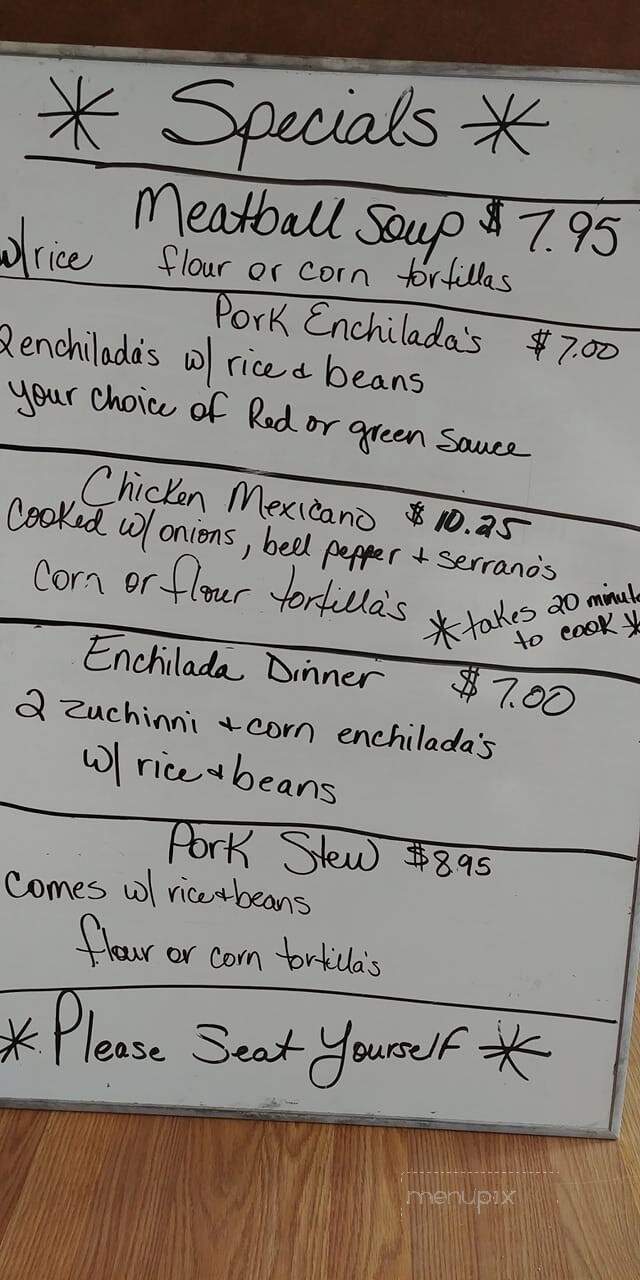 * Specials *
Meatball Soup $7.95
w/rice flour or corn tortillas
Pork Enchilada's $7.00
2 enchilada's w/ rice & beans
your choice of Red or green sauce
Chicken Mexicano $10.25
Cooked w/ onions, bell pepper + serrano's
Corn or flour tortilla's *takes 20 minut
to cook *
Enchilada Dinner $7.00
2 zuchinni + corn enchilada's
w/ rice & beans
Pork Stew $8.95
Comes w/ rice & beans
flour or corn tortilla's
* Please Seat Yourself *
menupix